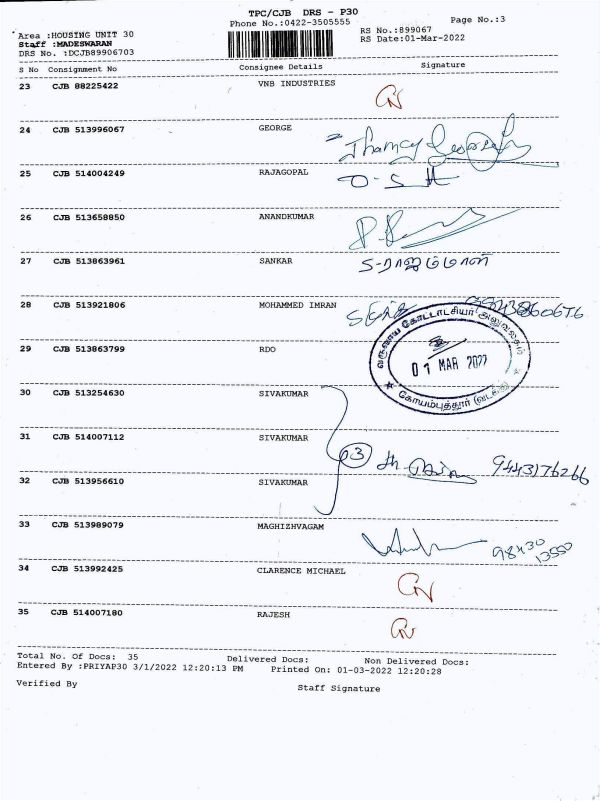 TPC/CJB DRS - P30
Phone No.:0422-3505555
Page No.:3
Area :HOUSING UNIT 30
RS No.:899067
Staff :MADESWARAN
RS Date:01-Mar-2022
DRS No. :DCJB89906703
S No Consignment No Consignee Details Signature
23 CJB 88225422 VNB INDUSTRIES
24 CJB 513996067 GEORGE
25 CJB 514004249 RAJAGOPAL
26 CJB 513658850 ANANDKUMAR
27 CJB 513863961 SANKAR S-ராஜம்மாள்
28 CJB 513921806 MOHAMMED IMRAN
வருவாய் கோட்டாட்சியர் அலுவலகம்
29 CJB 513863799 RDO
01 MAR 2022
கோயம்புத்தூர் (வடக்கு)
30 CJB 513254630 SIVAKUMAR
31 CJB 514007112 SIVAKUMAR
3 9443176266
32 CJB 513956610 SIVAKUMAR
33 CJB 513989079 MAGHIZHVAGAM
98430
13550
34 CJB 513992425 CLARENCE MICHAEL
35 CJB 514007180 RAJESH
Total No. Of Docs: 35 Delivered Docs: Non Delivered Docs:
Entered By :PRIYAP30 3/1/2022 12:20:13 PM Printed On: 01-03-2022 12:20:28
Verified By Staff Signature